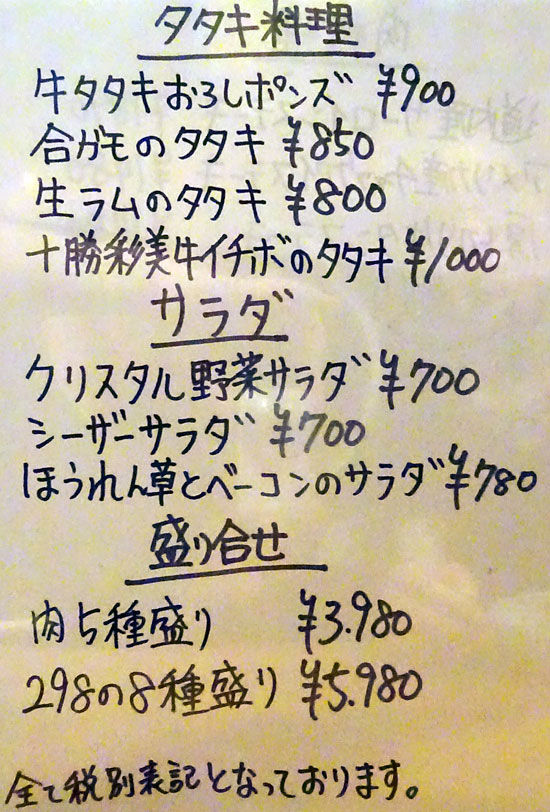 タタキ料理
牛タタキおろしポンズ ¥900
合ガモのタタキ ¥850
生ラムのタタキ ¥800
十勝彩美牛イチボのタタキ ¥1000
サラダ
クリスタル野菜サラダ ¥700
シーザーサラダ ¥700
ほうれん草とベーコンのサラダ ¥780
盛り合せ
肉5種盛り ¥3.980
298の8種盛り ¥5.980
全て税別表記となっております。